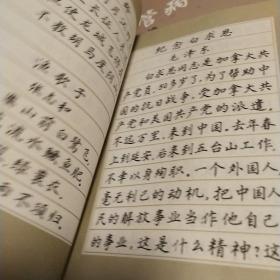 纪念白求恩
毛泽东
白求恩同志是加拿大共
产党员,50多岁了,为了帮助中
国的抗日战争,受加拿大共
产党和美国共产党的派遣,
不远万里,来到中国。去年春
上到延安,后来到五台山工作,
不幸以身殉职。一个外国人,
毫无利己的动机,把中国人
民的解放事业当作他自己
的事业,这是什么精神?这
龙城飞
不教胡马度阴
渔歌子
张志和
山前白鹭飞,
流水鳜鱼肥。
绿蓑衣,
不须归。